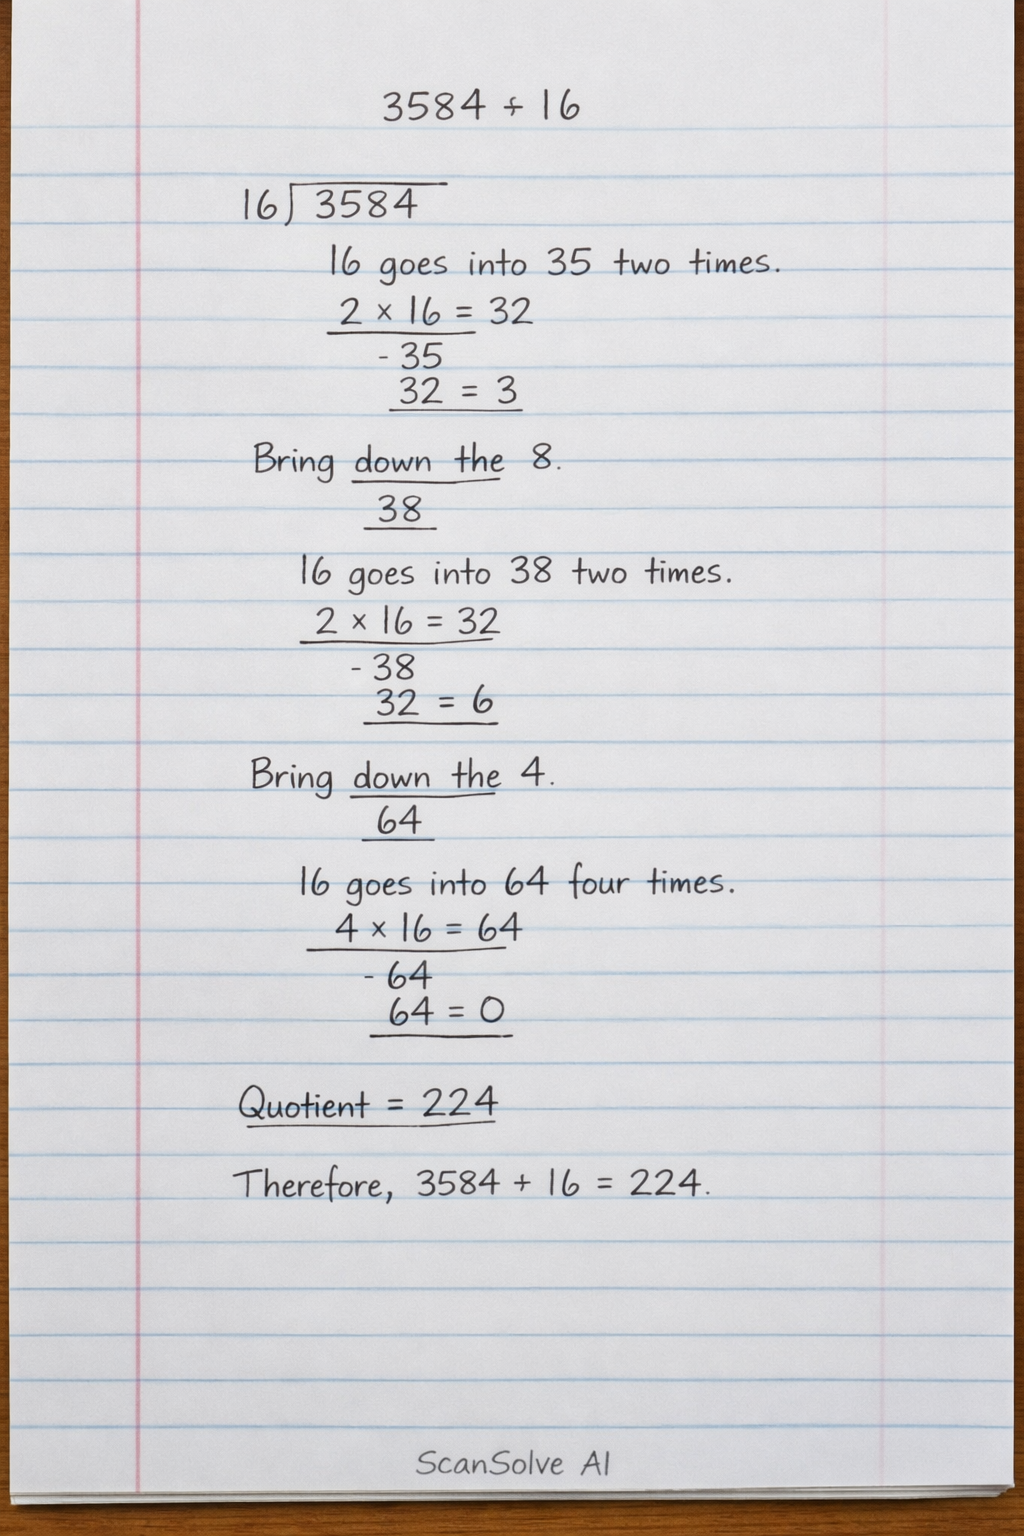 3584 ÷ 16
16) 3584
16 goes into 35 two times.
2 × 16 = 32
- 35
32 = 3
Bring down the 8.
38
16 goes into 38 two times.
2 × 16 = 32
- 38
32 = 6
Bring down the 4.
64
16 goes into 64 four times.
4 × 16 = 64
- 64
64 = 0
Quotient = 224
Therefore, 3584 + 16 = 224.
ScanSolve AI